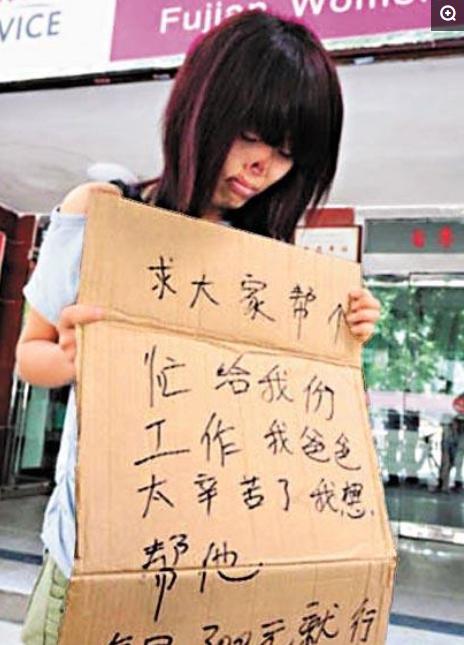 VICE
Fujian Wome
求大家帮个
忙给我份
工作我爸爸
太辛苦了我想
帮他
每月300元就行